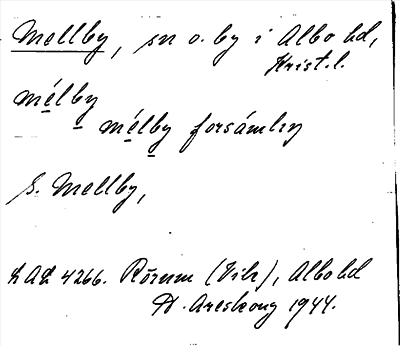 Mellby, sn o. by i Albo hd,
Krist. l.
mélby
mélby forsámlıŋ
S. Mellby,
LAL 4266. Rörum (Vik), Albo hd
H. Areskoug 1944.